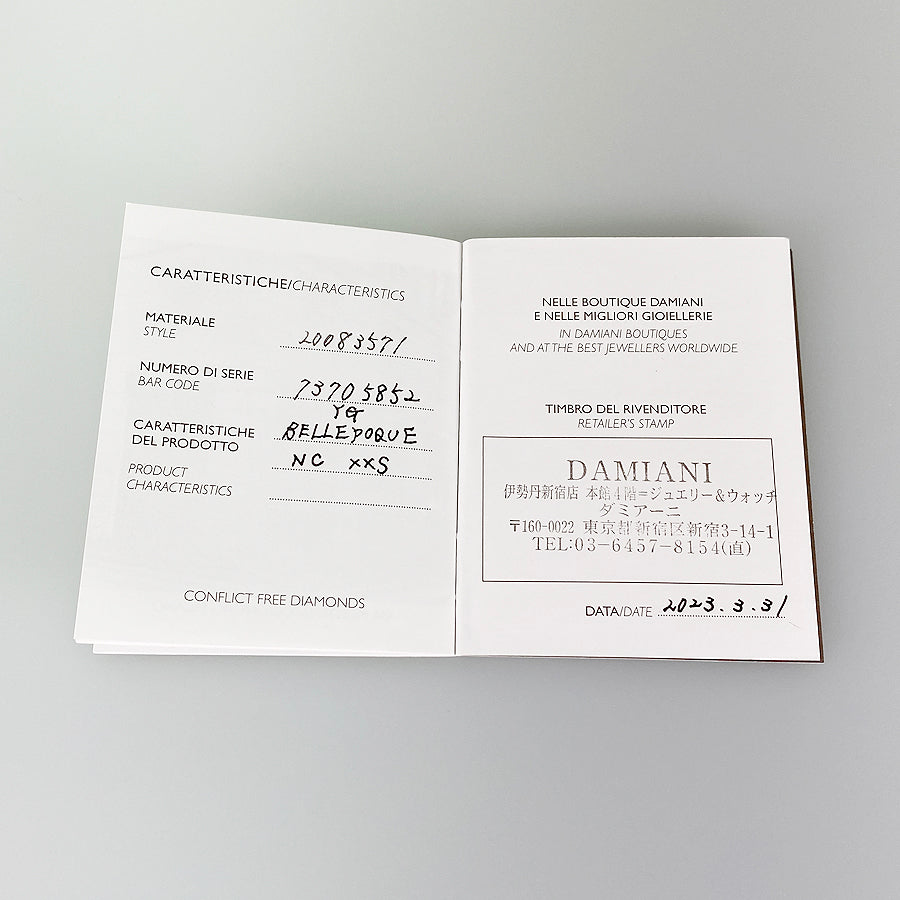 CARATTERISTICHE/CHARACTERISTICS
MATERIALE
STYLE
20083571
NUMERO DI SERIE
BAR CODE
73705852
YG
CARATTERISTICHE
DEL PRODOTTO
BELLEPOQUE
PRODUCT
CHARACTERISTICS
NC XXS
CONFLICT FREE DIAMONDS
NELLE BOUTIQUE DAMIANI
E NELLE MIGLIORI GIOIELLERIE
IN DAMIANI BOUTIQUES
AND AT THE BEST JEWELLERS WORLDWIDE
TIMBRO DEL RIVENDITORE
RETAILER'S STAMP
DAMIANI
伊勢丹新宿店 本館4階=ジュエリー&ウォッチ
ダミアーニ
〒160-0022 東京都新宿区新宿3-14-1
TEL:03-6457-8154(直)
DATA/DATE 2023.3.31